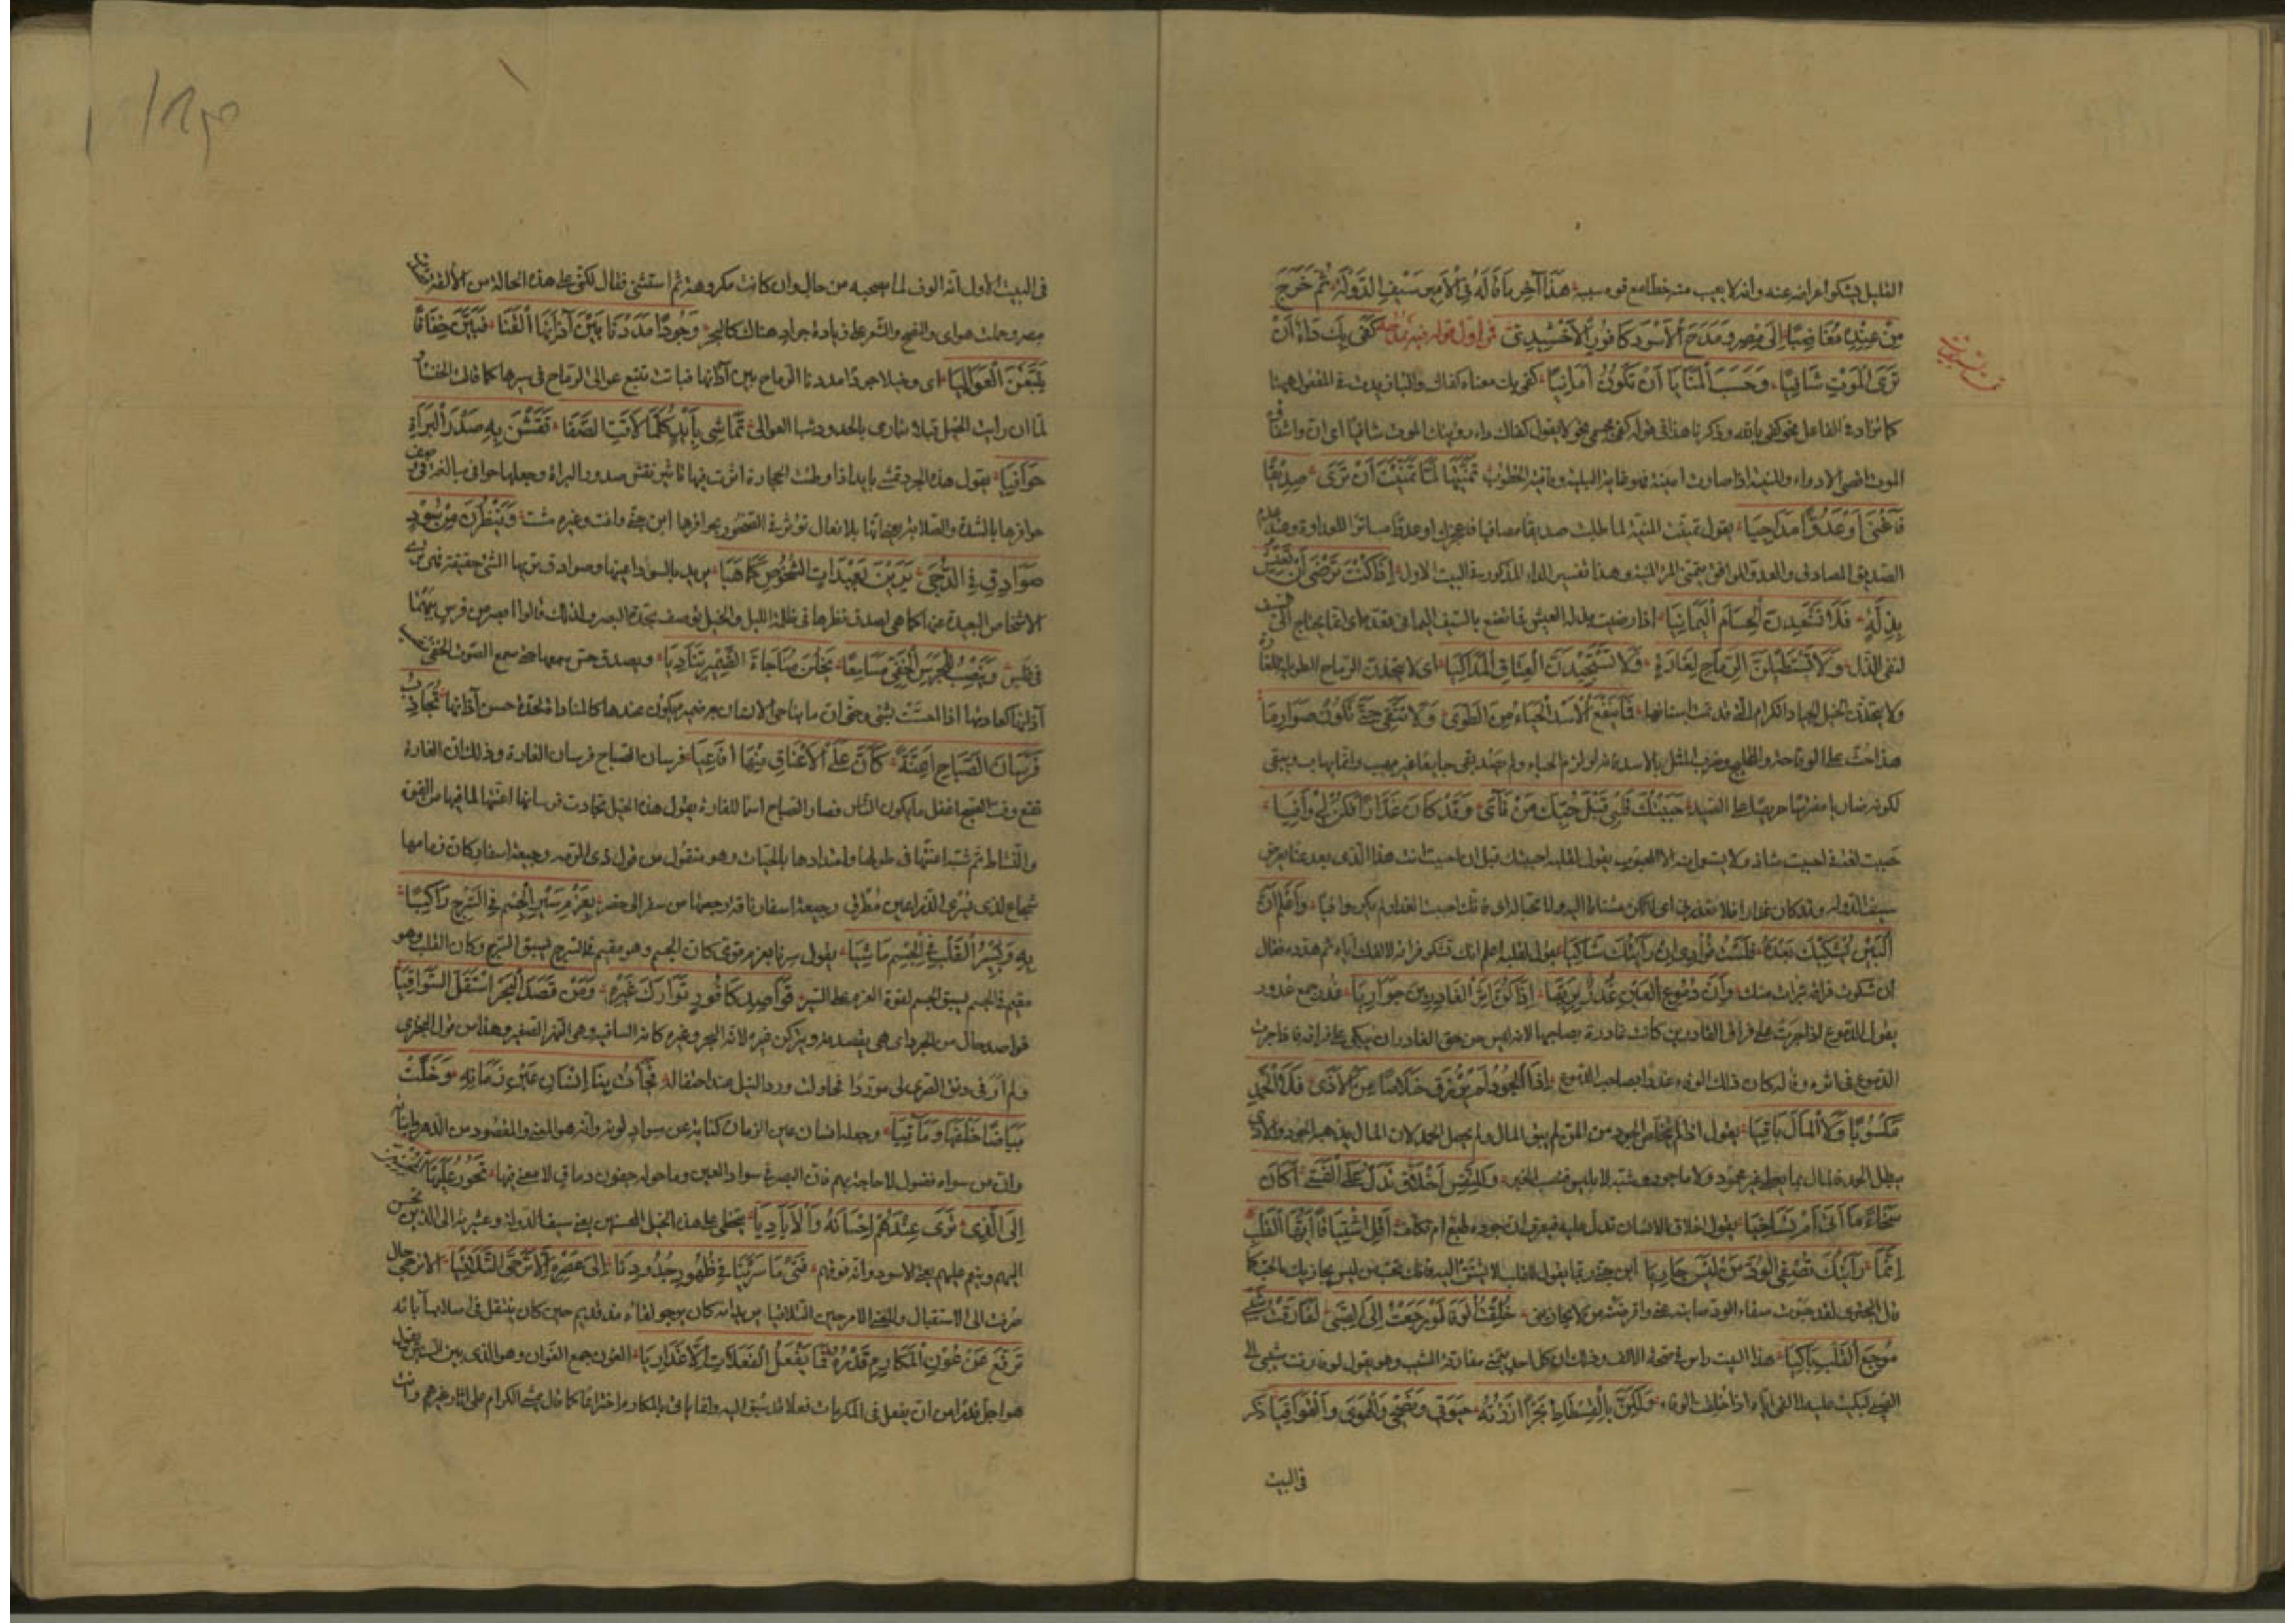 القليل يشكوا اعراضه عنه وانه لا يعيب منه خطأ مع قوه سببه هَذَا آخِرُ مَا قَالَهُ فِي الْأَمِيرِ سَيْفِ الدَّوْلَةِ ثُمَّ خَرَجَ
مِنْ عِنْدِهِ مُغَاضِبًا إِلَى مِصْرَ وَمَدَحَ الْأَسْوَدَ كَافُورَ الْأَخْشِيدِيَّ كَفَى بِكَ دَاءً أَنْ
تَرَى الْمَوْتَ شَافِيًا وَحَسْبُ الْمَنَايَا أَنْ تَكُونَ أَمَانِيَا كفى بك معناه كفاك والباء زيدت في المفعول ههنا
كما تزاد في الفاعل نحو كفى بالله وذكرنا هذا في قوله كفى بجسمي نحولا يقول كفاك داء رؤيتك الموت شافيا اى ان
الموت اقصى الادواء والمنية اذا صارت امنية فهو غاية البلية تَمَنَّيْتَهَا لَمَّا تَمَنَّيْتَ أَنْ تَرَى صَدِيقًا
فَأَعْيَى أَوْ عَدُوًّا مُدَاجِيَا يقول تمنيت المنية لما طلبت صديقا مصافيا فاعجزك او عدوا مساترا للعداوة وعند عدم
الصديق المصادق والعدو الموافق يتمنى المرء المنية وهذا تفسير الداء المذكور في البيت الاول إِذَا كُنْتَ تَرْضَى أَنْ تَعِيشَ
بِذِلَّةٍ فَلَا تَسْتَعِدَّنَّ الْحُسَامَ الْيَمَانِيَا اذا رضيت بذل العيش فما تصنع بالسيف اليماني تعده اى انما يحتاج الى
لنفى الذل وَلَا تَسْتَطِيلَنَّ الرِّمَاحَ لِغَارَةٍ وَلَا تَسْتَجِيدَنَّ الْعِتَاقَ الْمَذَاكِيَا اى لا يتخذن الرماح الطويلة للغارة
ولا يتخذن الخيل الجياد الكرام التي قد تمت اسنانها فَمَا يَنْفَعُ الْأُسْدَ الْحَيَاءُ مِنَ الطَّوَى وَلَا تُتَّقَى حَتَّى تَكُونَ ضَوَارِيَا
هذا حث على الوقاحة وضرب المثل بالاسد فانه لو لزم الحياء ولم يصد بقى جايعا غير مهيب وانما يهاب ويتقى
لكونه ضاريا مفترسا حريصا على الصيد حَبَبْتُكَ قَلْبِي قَبْلَ حُبِّكَ مَنْ نَأَى وَقَدْ كَانَ غَدَّارًا فَكُنْ لِي وَافِيَا
حببت لغة في احببت شاذ ولا يستعمل منه الا المحبوب يقول لقلبه احببتك قبل ان احببت انت هذا الذى بعد عنا يعرض
بسيف الدولة وقد كان غدارا فلا تغدر بي اى لا تكن مشتاقا اليه وَأَعْلَمُ أَنَّ
الْبَيْنَ يُشْكِيكَ بَعْدَهُ فَلَسْتَ فُؤَادِي إِنْ رَأَيْتُكَ شَاكِيَا يقول لقلبه اعلم انك تشكو فراقه لالفك اياه ثم هدده فقال
ان شكوت فراقه تبرأت منك وَإِنَّ دُمُوعَ الْعَيْنِ غُدُرٌ بِرَبِّهَا إِذَا كُنَّ إِثْرَ الْغَادِرِينَ جَوَارِيَا غدر جمع غدور
يقول الدموع اذا جرت على فراق الغادرين كانت غادرة بصاحبها لانه ليس من حق الغادر ان يبكى على فراقه فاذا جرت
الدموع في اثره وفاء له كان ذلك الوفاء غدرا بصاحب الدموع إِذَا الْجُودُ لَمْ يُرْزَقْ خَلَاصًا مِنَ الْأَذَى فَلَا الْحَمْدُ
مَكْسُوبًا وَلَا الْمَالُ بَاقِيَا يقول اذا لم يتخلص الجود من المن لم يبق المال ولم يحصل الحمد لان المال يذهبه الجود والاذى
يبطل الحمد وَلِلنَّفْسِ أَخْلَاقٌ تَدُلُّ عَلَى الْفَتَى أَكَانَ
سَخَاءً مَا أَتَى أَمْ تَسَاخِيَا يقول اخلاق الانسان تدل عليه فيعرف ان جوده طبع ام تكلف أَقِلَّ اشْتِيَاقًا أَيُّهَا الْقَلْبُ
إِنَّمَا رَأَيْتُكَ تُصْفِي الْوُدَّ مَنْ لَيْسَ جَازِيَا يقول للقلب لا تشتق اليه فانك تحب من ليس يجازيك بالحب كما
قال البحترى لقد حبوت صفاء الود صائنه عنى واقرضته من لا يجازينى خُلِقْتُ أَلُوفًا لَوْ رَجَعْتُ إِلَى الصِّبَى لَفَارَقْتُ شَيْبِي
مُوجَعَ الْقَلْبِ بَاكِيَا هذا البيت راس في صحة الالف وذلك ان كل احد يتمنى مفارقة الشيب وهو يقول لو فارقت شيبى الى
الصبى لبكيت عليه لالفى اياه اذ خلقت الوفا وَلَكِنَّ بِالْفُسْطَاطِ بَحْرًا أَزَرْتُهُ حَيَوتِي وَنُصْحِي وَالْهَوَى وَالْقَوَافِيَا ذكر
فى البيت
فى البيت الاول انه الوف لما يصحبه من حال وان كانت مكروهة ثم استثنى فقال لكنى على هذه الحالة من الالفة
مصر وحملت هواى والنصح والشعر على زيارة جواد هناك كالبحر وَجُرْدًا مَدَدْنَا بَيْنَ آذَانِهَا الْقَنَا فَبِتْنَ خِفَافًا
يَتَّبِعْنَ الْعَوَالِيَا اى وخيلا جردا مددنا الرماح بين آذانها فباتت تتبع عوالى الرماح في سيرها كما قالت الخنساء
لما ان رايت الخيل قبلا تبارى بالخدود شبا العوالى تَمَاشَى بِأَيْدٍ كُلَّمَا وَافَتِ الصَّفَا نَقَشْنَ بِهِ صَدْرَ الْبُزَاةِ
حَوَافِيَا يقول هذه الجرد تمشى بايد اذا وطئت الحجارة اثرت فيها تاثير نقش صدور البزاة وجعلها حوافى مبالغة في وصف
حوافرها بالشدة والصلابة بلا نعال تؤثر في الصخور بحوافرها وَتَنْظُرُ مِنْ سُودٍ
صَوَادِقَ فِي الدُّجَى يَرَيْنَ بَعِيدَاتِ الشُّخُوصِ كَمَا هِيَا يريد بالسود اعينها وصوادق تريها الشى حقيقة
الاشخاص البعيدة عنها كما هى لصدق نظرها فى ظلمة الليل والخيل توصف بحدة البصر ولذلك قالوا ابصر من فرس بهماء
فى غلس وَتَنْصِبُ لِلْجَرْسِ الْخَفِيِّ مَسَامِعًا يَخَلْنَ مُنَاجَاةَ الضَّمِيرِ تَنَادِيَا وبصدق حس سمعها حتى تسمع الصوت الخفى
آذانها كعادتها اذا احست بشى وحتى ان ما يناجى الانسان به ضميره يكون عندها كالمناداة لحدة حس آذانها تُجَاذِبُ
فُرْسَانَ الصَّبَاحِ أَعِنَّةً كَأَنَّ عَلَى الْأَعْنَاقِ مِنْهَا أَفَاعِيَا فرسان الصباح فرسان الغارة وذلك ان الغارة
تقع وقت الصبح اغفل ما يكون الناس فصار الصباح اسما للغارة يقول هذه الخيل تجاذب فرسانها اعنتها لما فيها من القوة
والنشاط ثم شبه اعنتها في طولها وامتدادها بالحيات وهو منقول من قول ذى الرمه رجيعة اسفار كان زمامها
شجاع لدى يسرى الذراعين مطرق رجيعة اسفار ناقة رجعتها من سفر الى حضر بِعَزْمٍ يَسِيرُ الْجِسْمُ فِي السَّرْجِ رَاكِبًا
بِهِ وَيَسِيرُ الْقَلْبُ فِي الْجِسْمِ مَاشِيَا يقول سرنا بعزم قوى كان الجسم وهو مقيم في السرج يسبق السرج وكان القلب وهو
مقيم في الجسم يسبق الجسم لقوة العزم على السير قَوَاصِدَ كَافُورٍ تَوَارِكَ غَيْرِهِ وَمَنْ قَصَدَ الْبَحْرَ اسْتَقَلَّ السَّوَاقِيَا
قواصد حال من الجرد اى هى يقصدنه ويتركن غيره لانه البحر وغيره كانه الساقية وهى النهر الصغير وهذا من قول البحترى
ولم ار فى رنق الصرى لى موردا فحاولت ورد النيل عند احتفاله فَجَاءَتْ بِنَا إِنْسَانَ عَيْنِ زَمَانِهِ وَخَلَّتْ
بَيَاضًا خَلْفَهَا وَمَآقِيَا وجعله انسان عين الزمان كناية عن سواد لونه وانه هو المعنى والمقصود من الدهر وابنائه
وان من سواه فضول لا حاجة بهم فان البصر في سواد العين وما حوله جفون ومآق لا معنى فيها تَجُوزُ عَلَيْهَا الْمُحْسِنِينَ
إِلَى الَّذِي نَرَى عِنْدَهُمْ إِحْسَانَهُ وَالْأَيَادِيَا نتخطى على هذه الخيل المحسنين يعنى سيف الدولة وعشيرته الى الذى يحسن
اليهم وينعم عليهم يعنى الاسود وانه فوقهم فَتًى مَا سَرَيْنَا فِي ظُهُورِ جُدُودِنَا إِلَى عَصْرِهِ إِلَّا نُرَجِّي التَّلَاقِيَا
صرفت الى الاستقبال والمعنى الا مرجين التلاقيا يريد انه كان يرجو لقاءه منذ قديم حين كان ينتقل في اصلاب آبائه
تَرَفَّعَ عَنْ عُونِ الْمَكَارِمِ قَدْرُهُ فَمَا يَفْعَلُ الْفَعْلَاتِ إِلَّا عَذَارِيَا العون جمع العوان وهو الذى بين السنين يقول
هو اجل قدرا من ان يفعل فى المكرمات فعلا قد سبق اليه وانما ياتى بالمكارم اختراعا كما قال يمشى الكرام على اثار غيرهم وانت